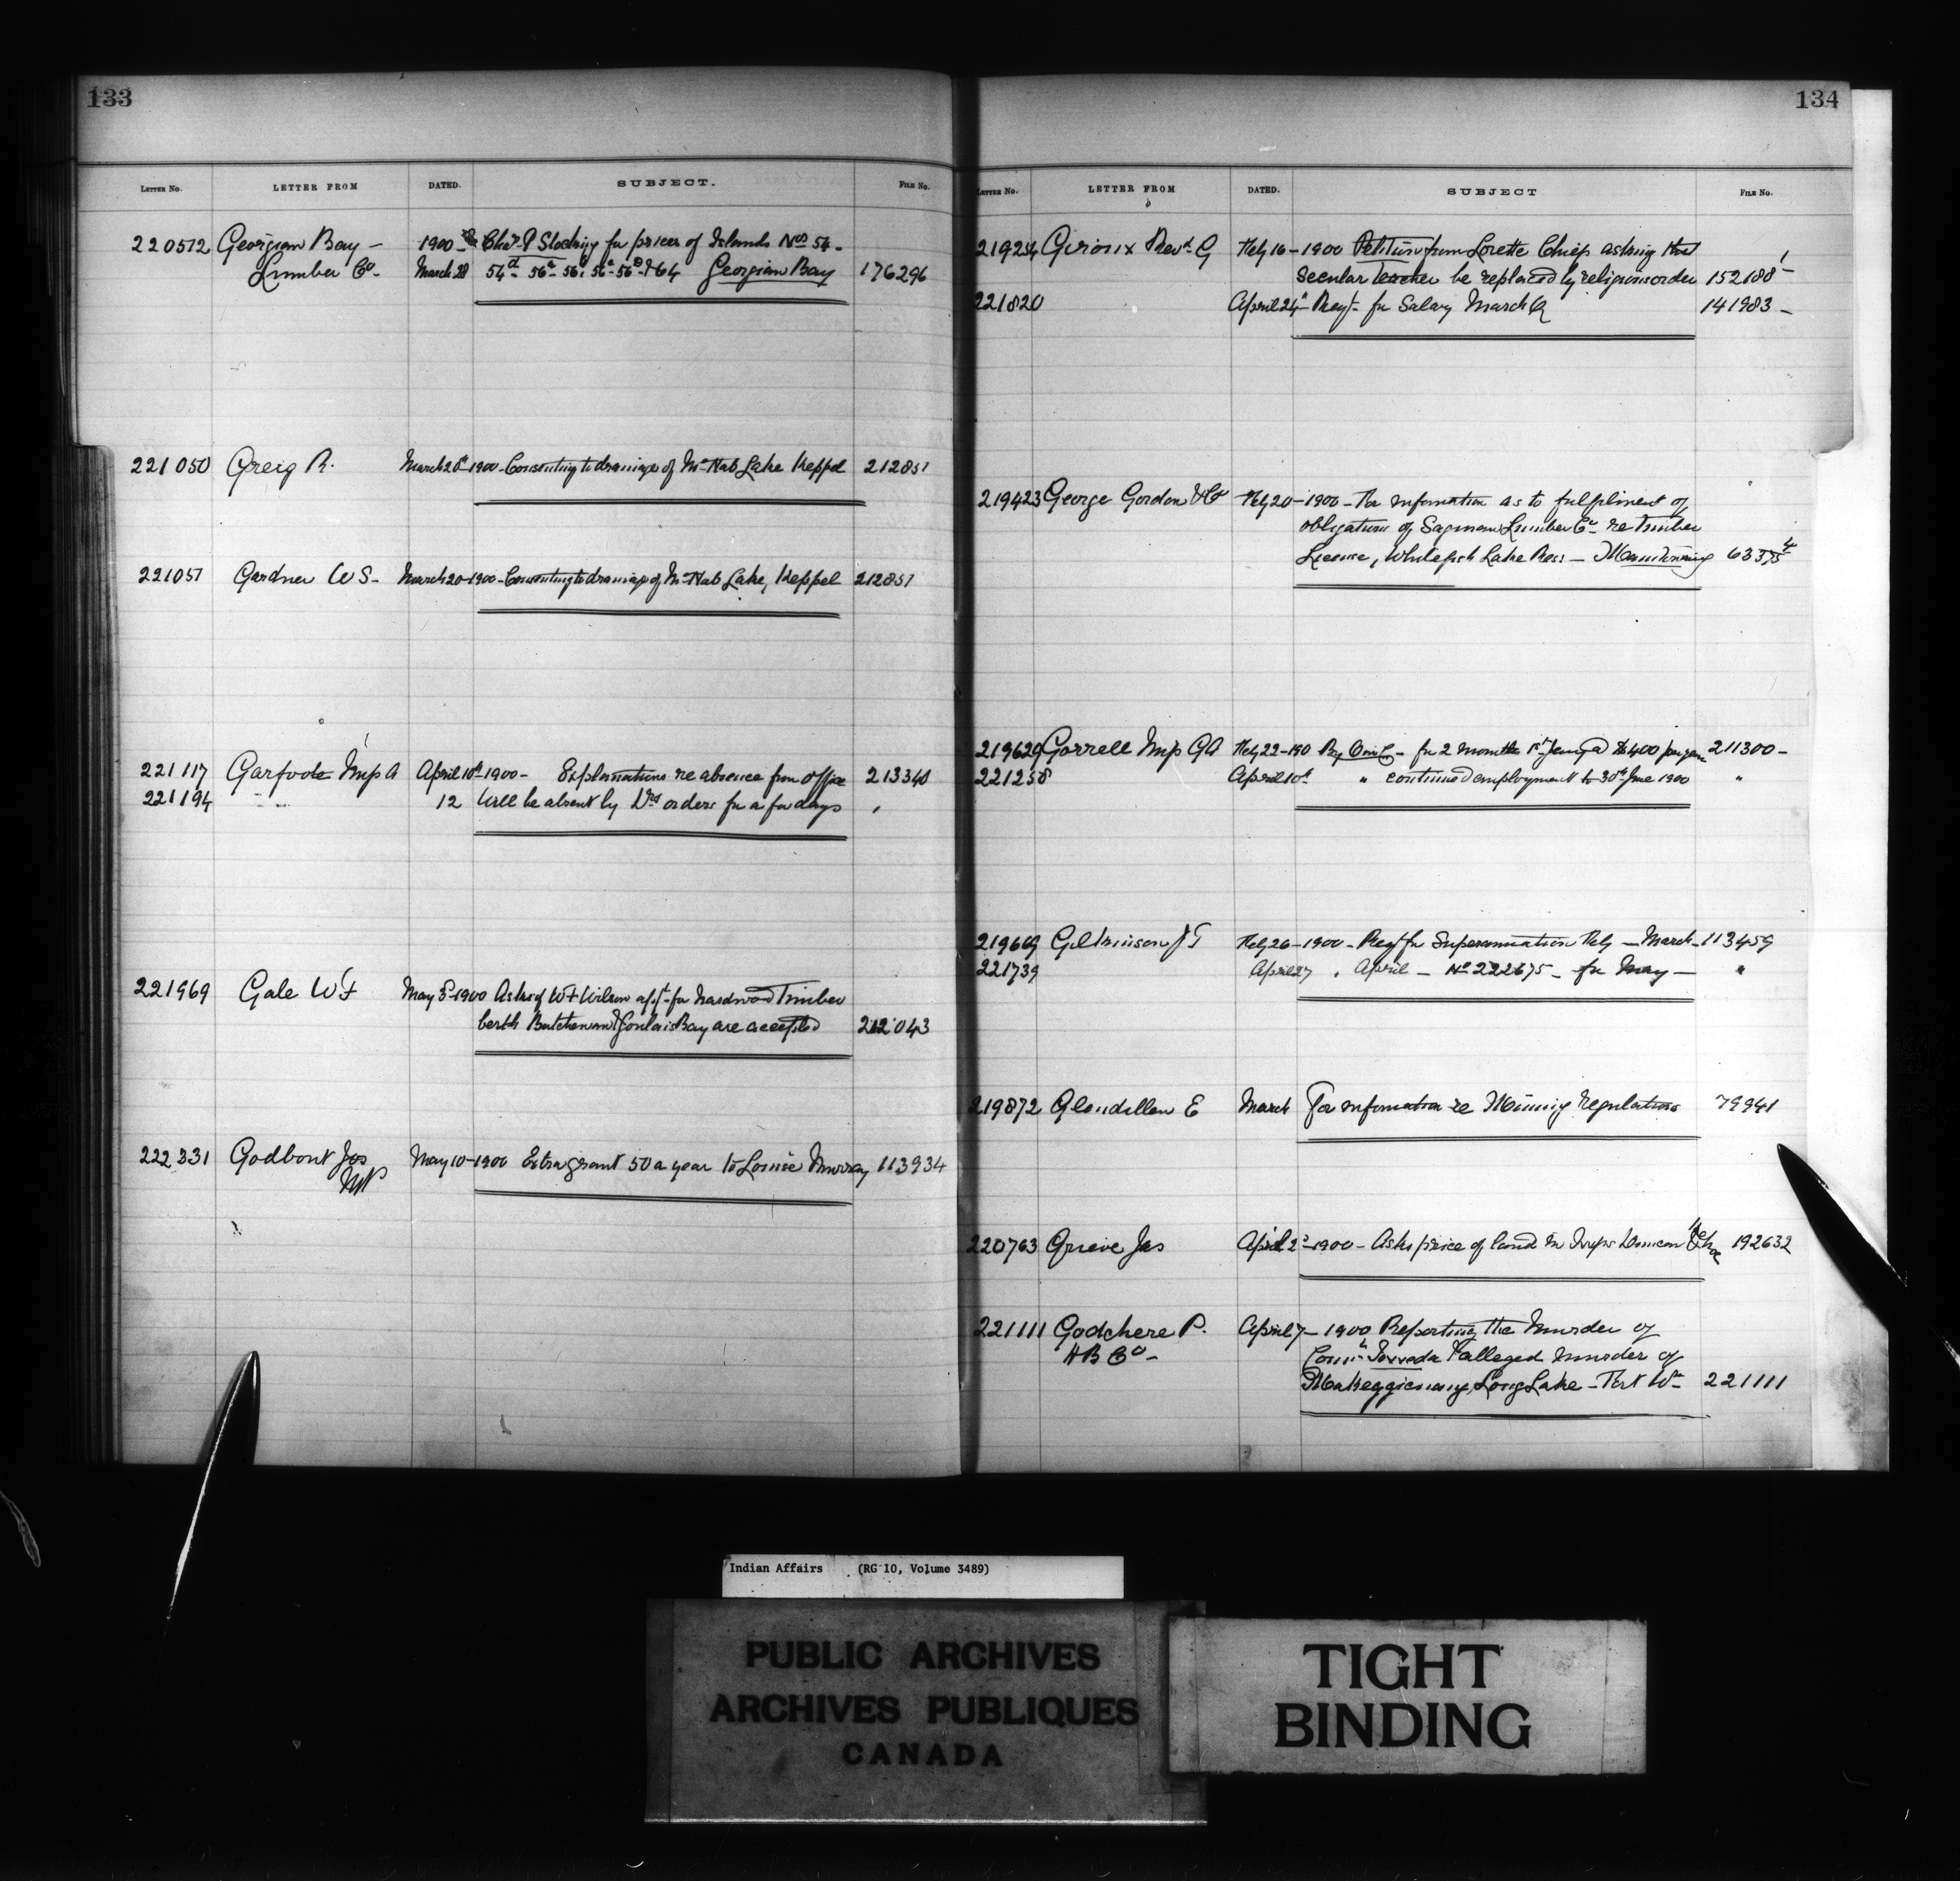 133
LETTER NO. LETTER FROM DATED. SUBJECT. FILE NO.
220572 Georgian Bay – 1900 – Chas P Stocking for prices of Islands Nos 54 –
Lumber Co – March 28 54d – 56a – 56 56 – 56 & 64 Georgian Bay 176296
221050 Greig R. March 20th 1900 – Consenting to drainage of McNab Lake Keppel 212851
221051 Gardner W S – March 20 – 1900 – Consenting to drainage of McNab Lake, Keppel 212851
221117 Garfode Insp A April 10th 1900 – Explanations re absence from office 213340
221194 " " 12 Will be absent by Drs orders for a few days "
221969 Gale W F May 3d – 1900 Asks if W F Wilson appt for hardwood Timber
berth Batchewana & Goulais Bay are accepted 212043
222331 Godbout Jos May 10 – 1900 Extra grant 50 a year to Louise Murray 113934
MP
134
LETTER NO. LETTER FROM DATED. SUBJECT FILE NO.
219254 Giroux Revd. G Feby 16 – 1900 Petition from Lorette Chiefs asking that
Secular Teacher be replaced by religious order 152188 1
221820 April 24th – Reqt – for Salary March Q 141983 –
219423 George Gordon & Co Feby 20 – 1900 – For information as to fulfilment of
obligations of Saginaw Lumber Co re Timber
License, Whitefish Lake Res – Manitowaning 63375 4
219629 Gorrell Insp GA Feby 22 – 190 for 2 months 1st Jany @ $1400 per year 211300 –
221258 April 10th " continued employment to 30th June 1900 "
219669 Gilkinson J T Feby 26 – 1900 – Reqt for Superannuation Feby – March 113459
221739 April 27 " April – No 222675 – for May – "
219872 Glendillen E March For information re Mining Regulations 79941
220763 Grieve Jas April 2d – 1900 – Asks price of land in Twps Duncan Kehoe 192632
221111 Godchere P. April 7 – 1900 Reporting the Murder of
H B Co – & alleged murder of
Long Lake – Port Wm 221111
Indian Affairs (RG 10, Volume 3489)
PUBLIC ARCHIVES
ARCHIVES PUBLIQUES
CANADA
TIGHT
BINDING